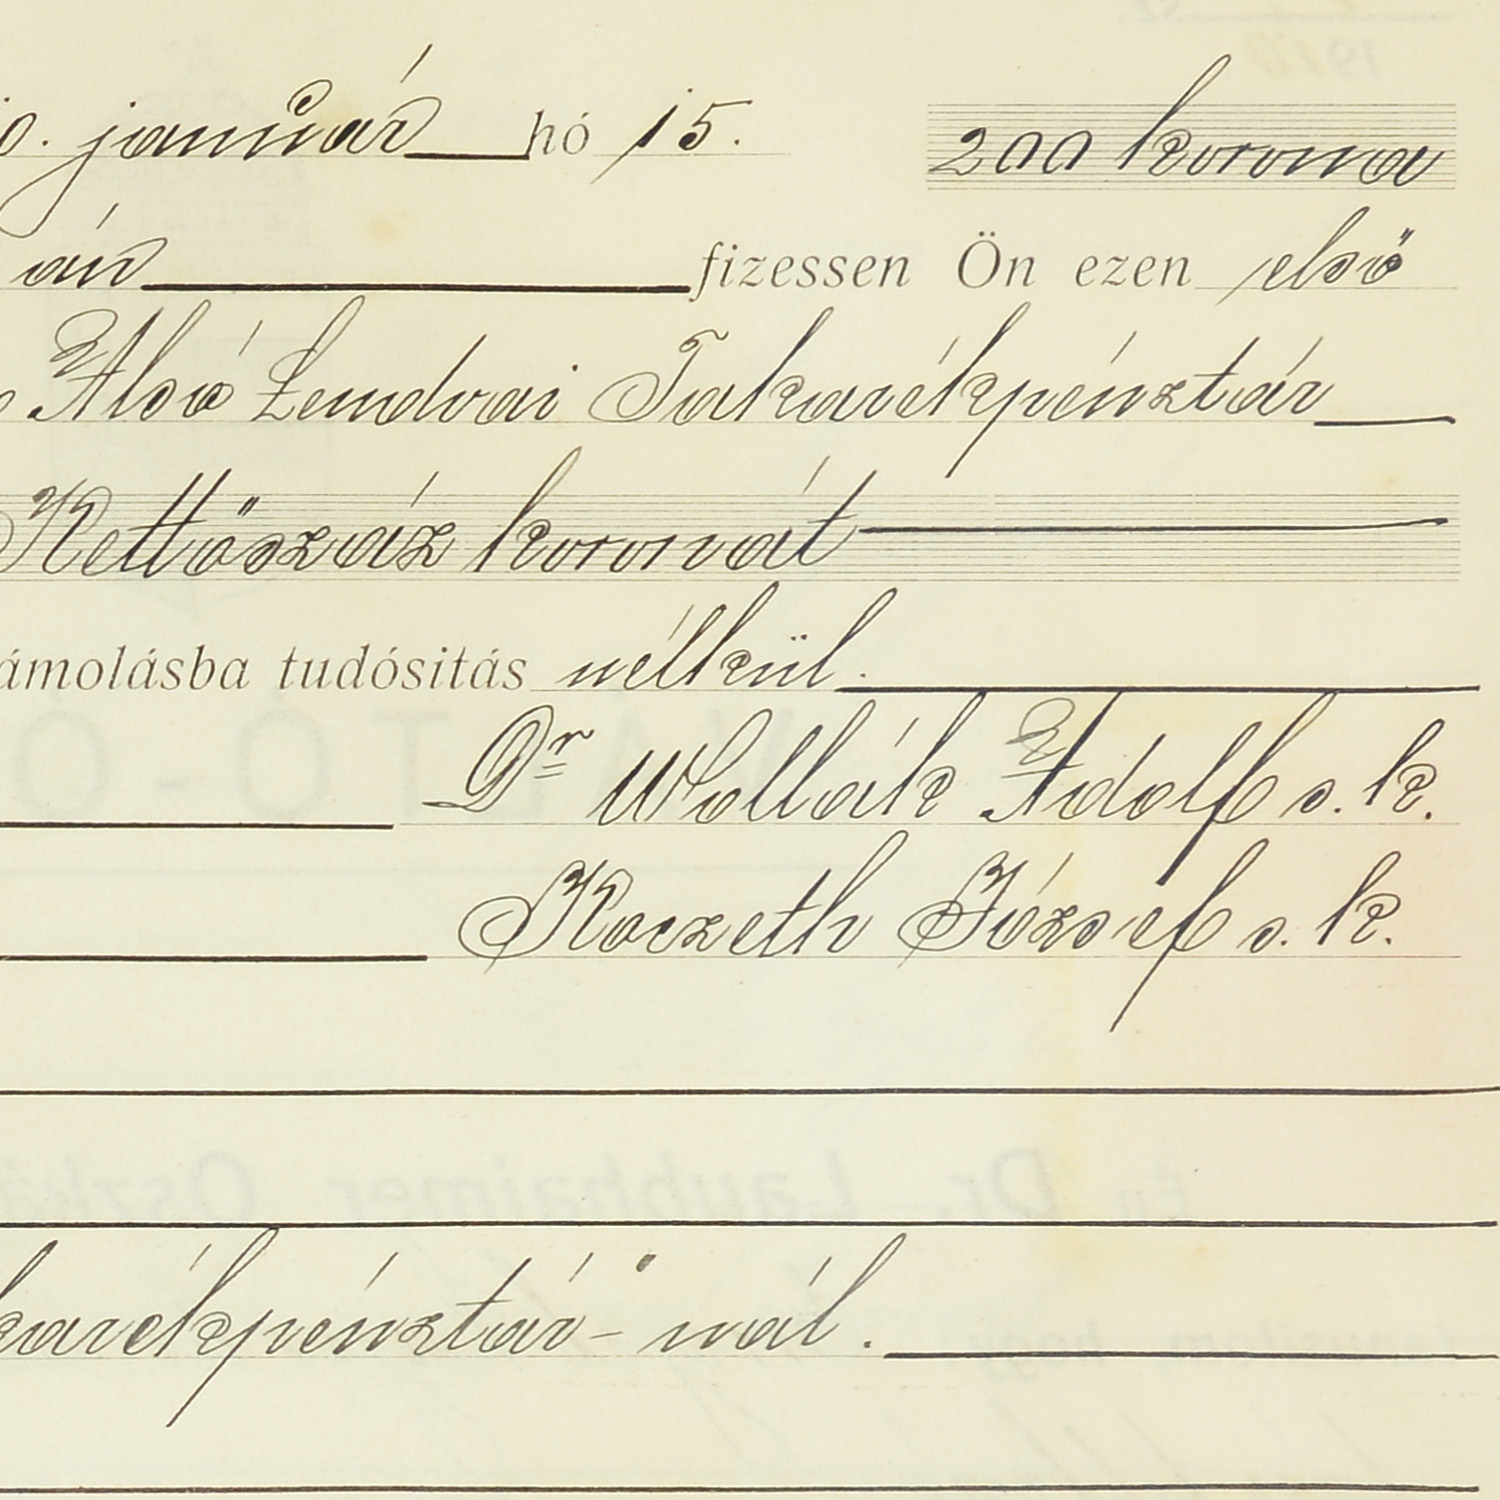 0. január hó 15. 200 korona
án fizessen Ön ezen első
Alsó Lendvai Takarékpénztár
Kettőszáz koronát
ámolásba tudósitás nélkül.
Dr Wollák Adolf s. k.
Koczeth József s. k.
karékpénztár-nál.